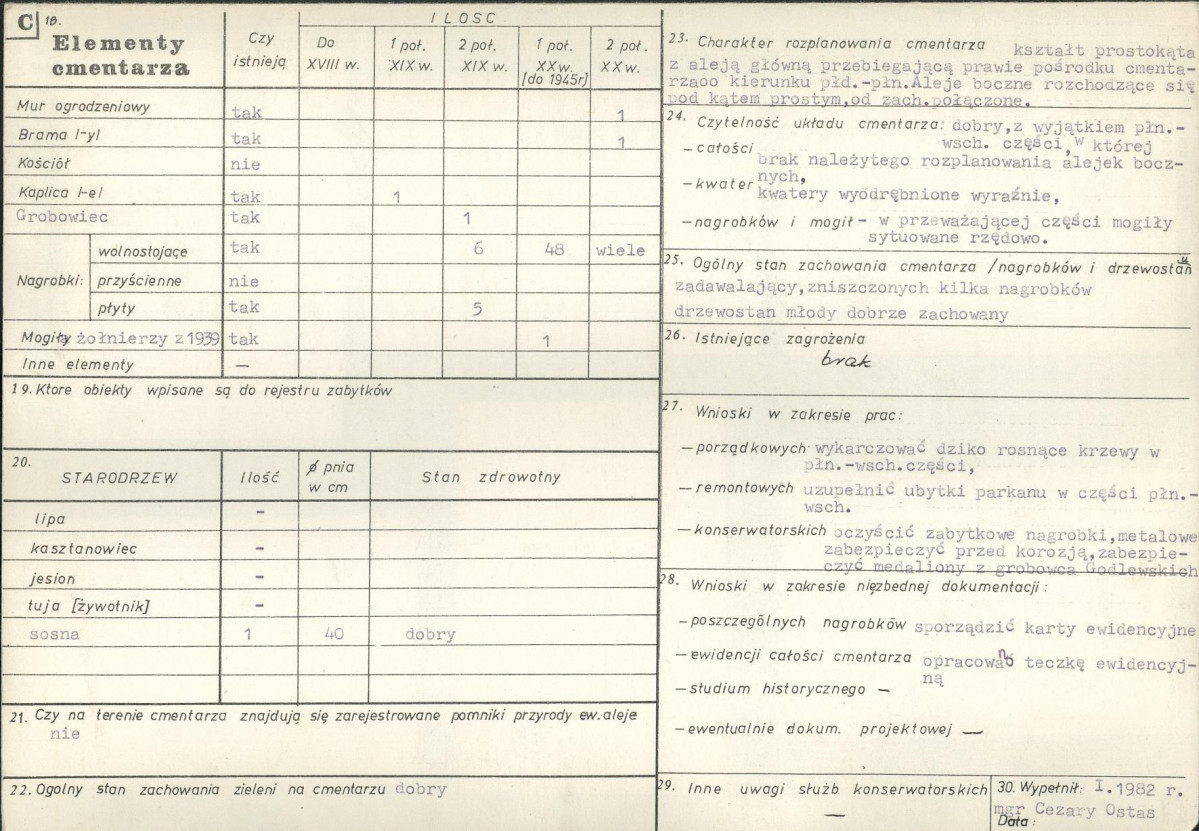 C 18.
Elementy cmentarza
Czy istnieją
ILOSC
Do XVIII w.
1 poł. XIX w.
2 poł. XIX w.
1 poł. XX w. [do 1945r]
2 poł. XX w.
Mur ogrodzeniowy tak 1
Brama /-y/ tak 1
Kościół nie
Kaplica /-e/ tak 1
Grobowiec tak 1
Nagrobki: wolnostojące tak 6 48 wiele
przyścienne nie
płyty tak 5
Mogiły żołnierzy z 1939 tak 1
Inne elementy —
19. Ktore obiekty wpisane są do rejestru zabytków
20.
STARODRZEW Ilość ∅ pnia w cm Stan zdrowotny
lipa -
kasztanowiec -
jesion -
tuja [żywotnik] -
sosna 1 40 dobry
21. Czy na terenie cmentarza znajdują się zarejestrowane pomniki przyrody ew. aleje
nie
22. Ogolny stan zachowania zieleni na cmentarzu dobry
23. Charakter rozplanowania cmentarza kształt prostokąta
z aleją główną przebiegającą prawie pośrodku cmenta-
rzaoo kierunku płd.-płn.Aleje boczne rozchodzące się
pod kątem prostym,od zach.połączone.
24. Czytelność układu cmentarza: dobry,z wyjątkiem płn.-
— całości wsch. części, w której
brak należytego rozplanowania alejek bocz-
nych,
— kwater kwatery wyodrębnione wyraźnie,
— nagrobków i mogił - w przeważającej części mogiły
sytuowane rzędowo.
25. Ogólny stan zachowania cmentarza /nagrobków i drzewostanu
zadawalający,zniszczonych kilka nagrobków
drzewostan młody dobrze zachowany
26. Istniejące zagrożenia
brak
27. Wnioski w zakresie prac:
— porządkowych wykarczować dziko rosnące krzewy w
płn.-wsch.części,
— remontowych uzupełnić ubytki parkanu w części płn.-
wsch.
— konserwatorskich oczyścić zabytkowe nagrobki,metalowe
zabezpieczyć przed korozją,zabezpie-
czyć medaliony z grobowca Godlewskich
28. Wnioski w zakresie niezbednej dokumentacji:
— poszczególnych nagrobków sporządzić karty ewidencyjne
— ewidencji całości cmentarza opracowano teczkę ewidencyj-
ną
— studium historycznego —
— ewentualnie dokum. projektowej —
29. Inne uwagi służb konserwatorskich
—
30. Wypełnił: I.1982 r.
mgr Cezary Ostas
Data: